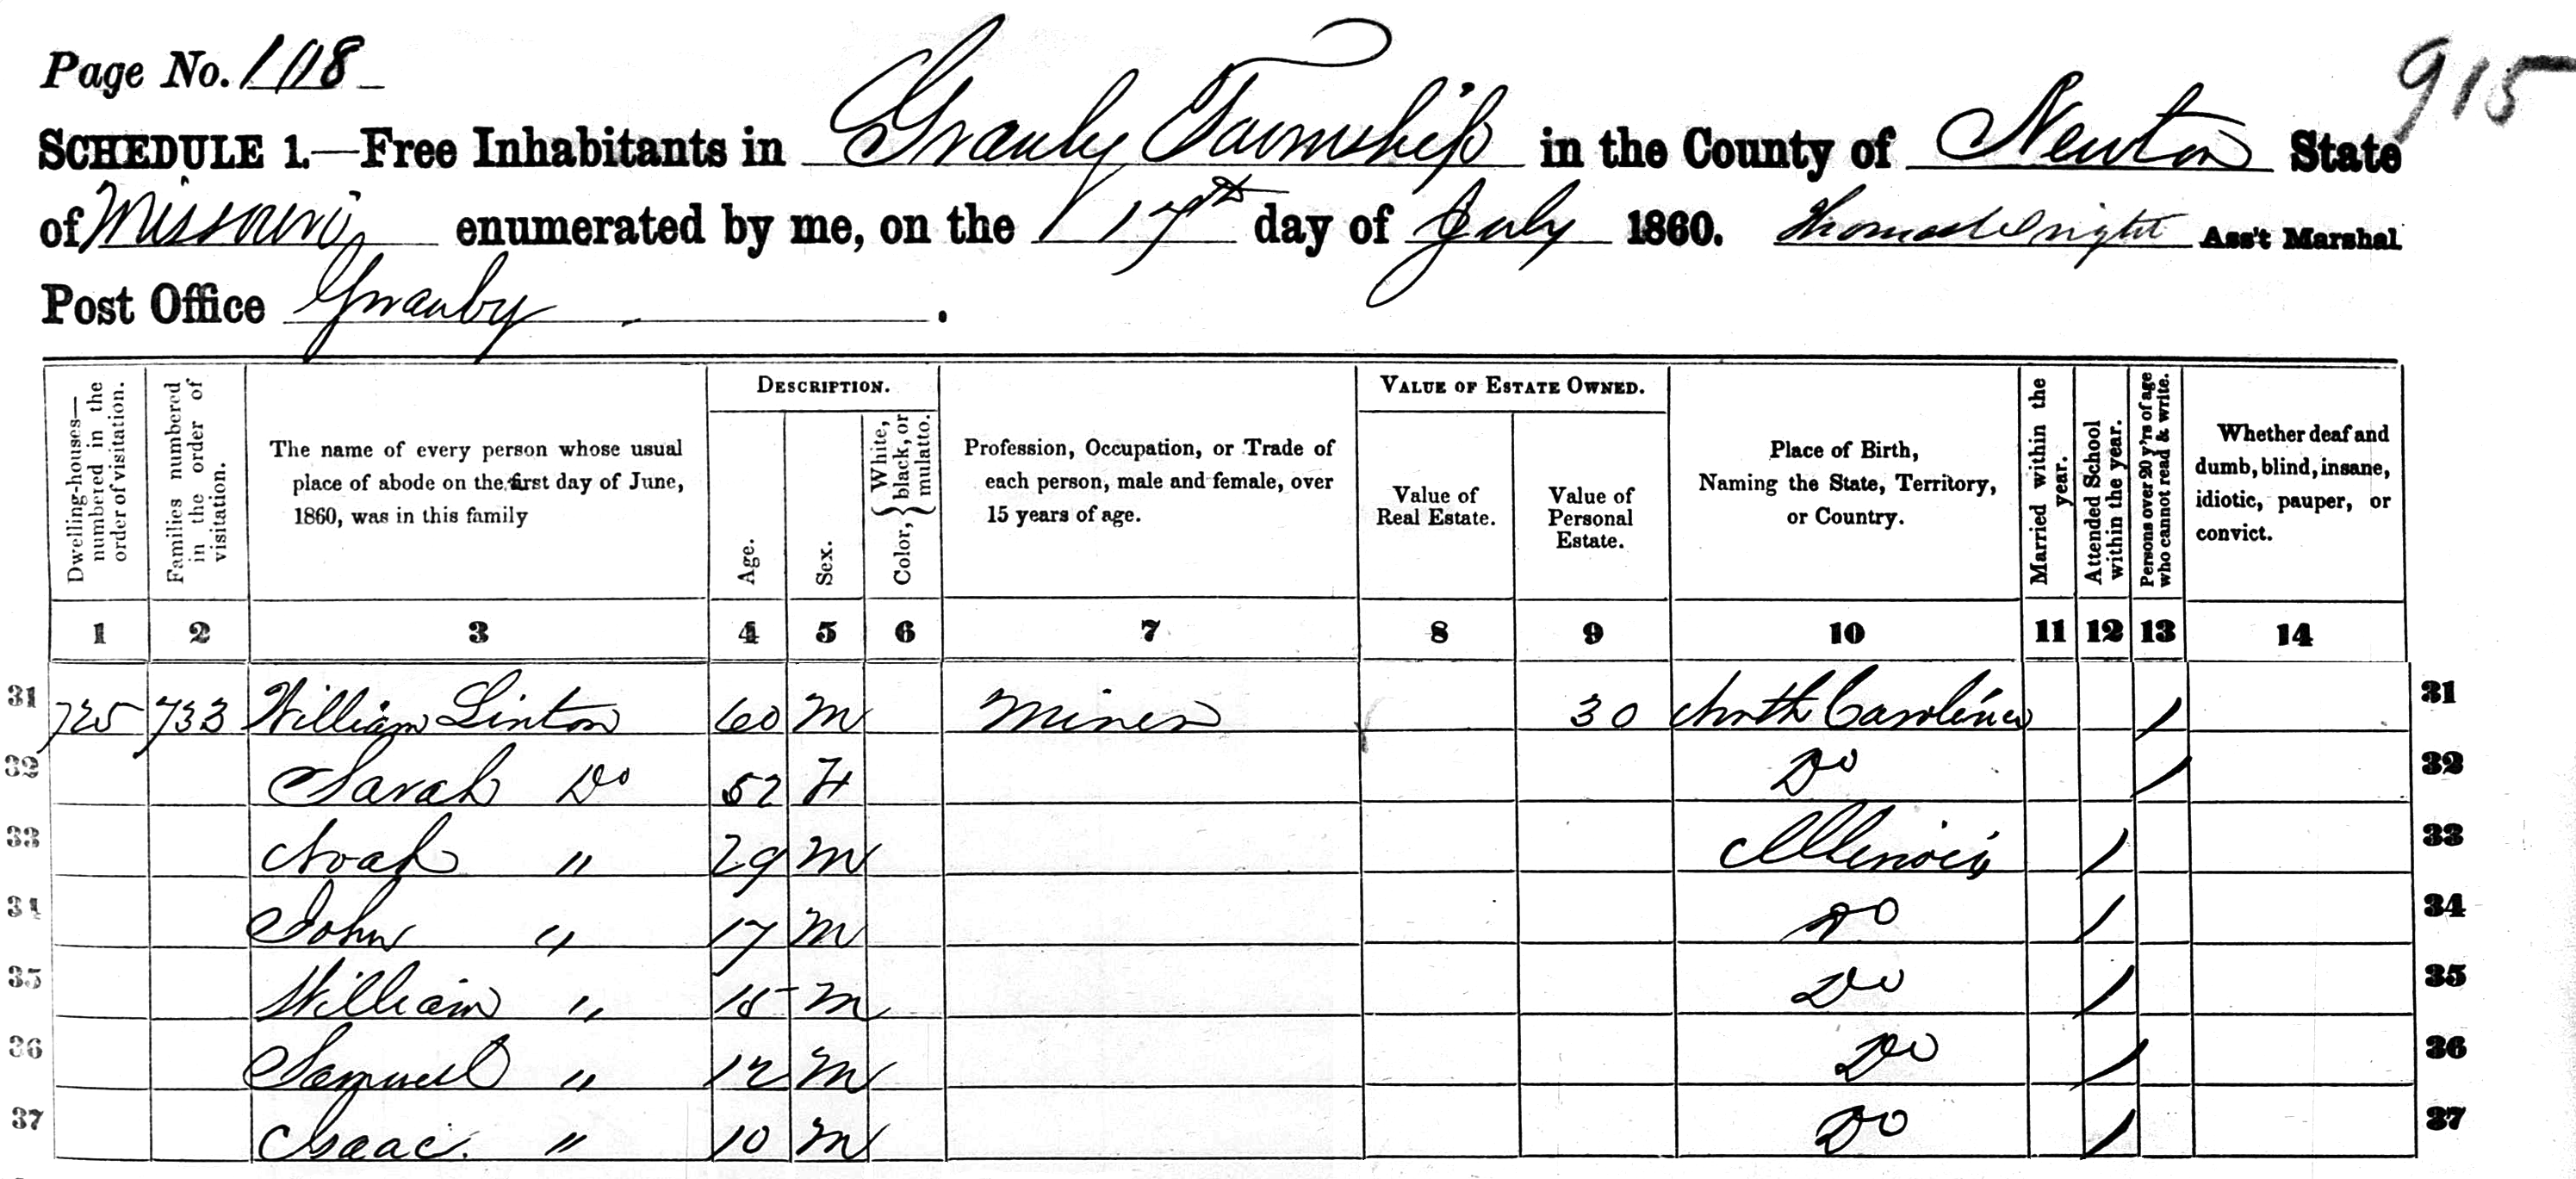 Page No. 108
915
SCHEDULE 1.—Free Inhabitants in Granby Township in the County of Newton State
of Missouri enumerated by me, on the 17th day of July 1860. Thomas Wright Ass't Marshal
Post Office Granby.
Dwelling-houses—numbered in the order of visitation.
Families numbered in the order of visitation.
The name of every person whose usual place of abode on the first day of June, 1860, was in this family
DESCRIPTION.
Age.
Sex.
Color, { White, black, or mulatto.
Profession, Occupation, or Trade of each person, male and female, over 15 years of age.
VALUE OF ESTATE OWNED.
Value of Real Estate.
Value of Personal Estate.
Place of Birth, Naming the State, Territory, or Country.
Married within the year.
Attended School within the year.
Persons over 20 y'rs of age who cannot read & write.
Whether deaf and dumb, blind, insane, idiotic, pauper, or convict.
1 2 3 4 5 6 7 8 9 10 11 12 13 14
31 725 733 William Linton 60 M Miner 30 North Carolina / 31
32 Sarah Do 52 F Do / 32
33 Noah " 29 M Illinois / 33
34 John " 17 M Do / 34
35 William " 15 M Do / 35
36 Samuel " 12 M Do / 36
37 Isaac " 10 M Do / 37